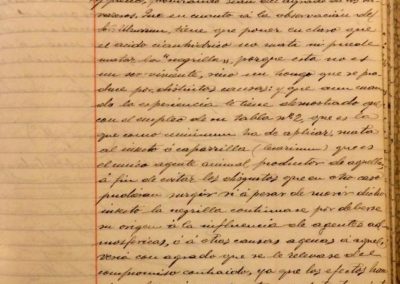 y precio, procurando sean del agrado de los
vecinos. Que en cuanto á la observación de
Sr. tiene que poner en claro que
el acido cianhidrico no mata ni puede
matar la "negrilla", porque esta no es
un ser viviente, sino un hongo que se pro
duce por distintas causas; y que aun cuan
do la esperiencia le tiene demostrado que
con el empleo de su tabla nº 2, que es la
que como minimum ha de aplicar, mata
al insecto ó caparrilla (lecanium) que es
el unico agente animal productor de aquella
á fin de evitar los disgustos que en otro caso
pudieran surgir si á pesar de morir dicho
insecto la negrilla continuase por deberse
su origen á la influencia de agentes at
mosfericos, ó á otras causas agenas á aquel,
veria con agrado que se le relevase del
compromiso contraido, ya que los efectos han